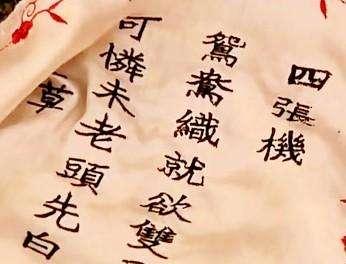 四張機
鴛鴦織就欲雙
可憐未老頭先白
草